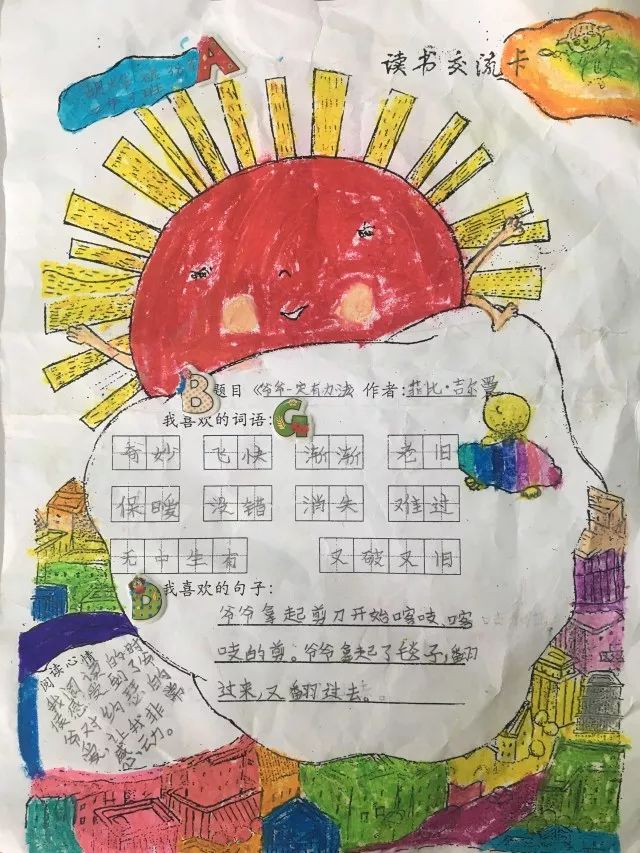 A
读书交流卡
B
题目《爷爷一定有办法》作者:菲比·吉尔曼
我喜欢的词语:
G
奇妙 飞快 渐渐 老旧
保暖 没错 消失 难过
无中生有 又破又旧
我喜欢的句子:
爷爷拿起剪刀开始喀吱、喀
吱的剪。爷爷拿起了毯子,翻
过来,又翻过去。
阅读心情
我阅读的时
候感受到了爷
爷对约瑟的
爱,让我非常
感动。